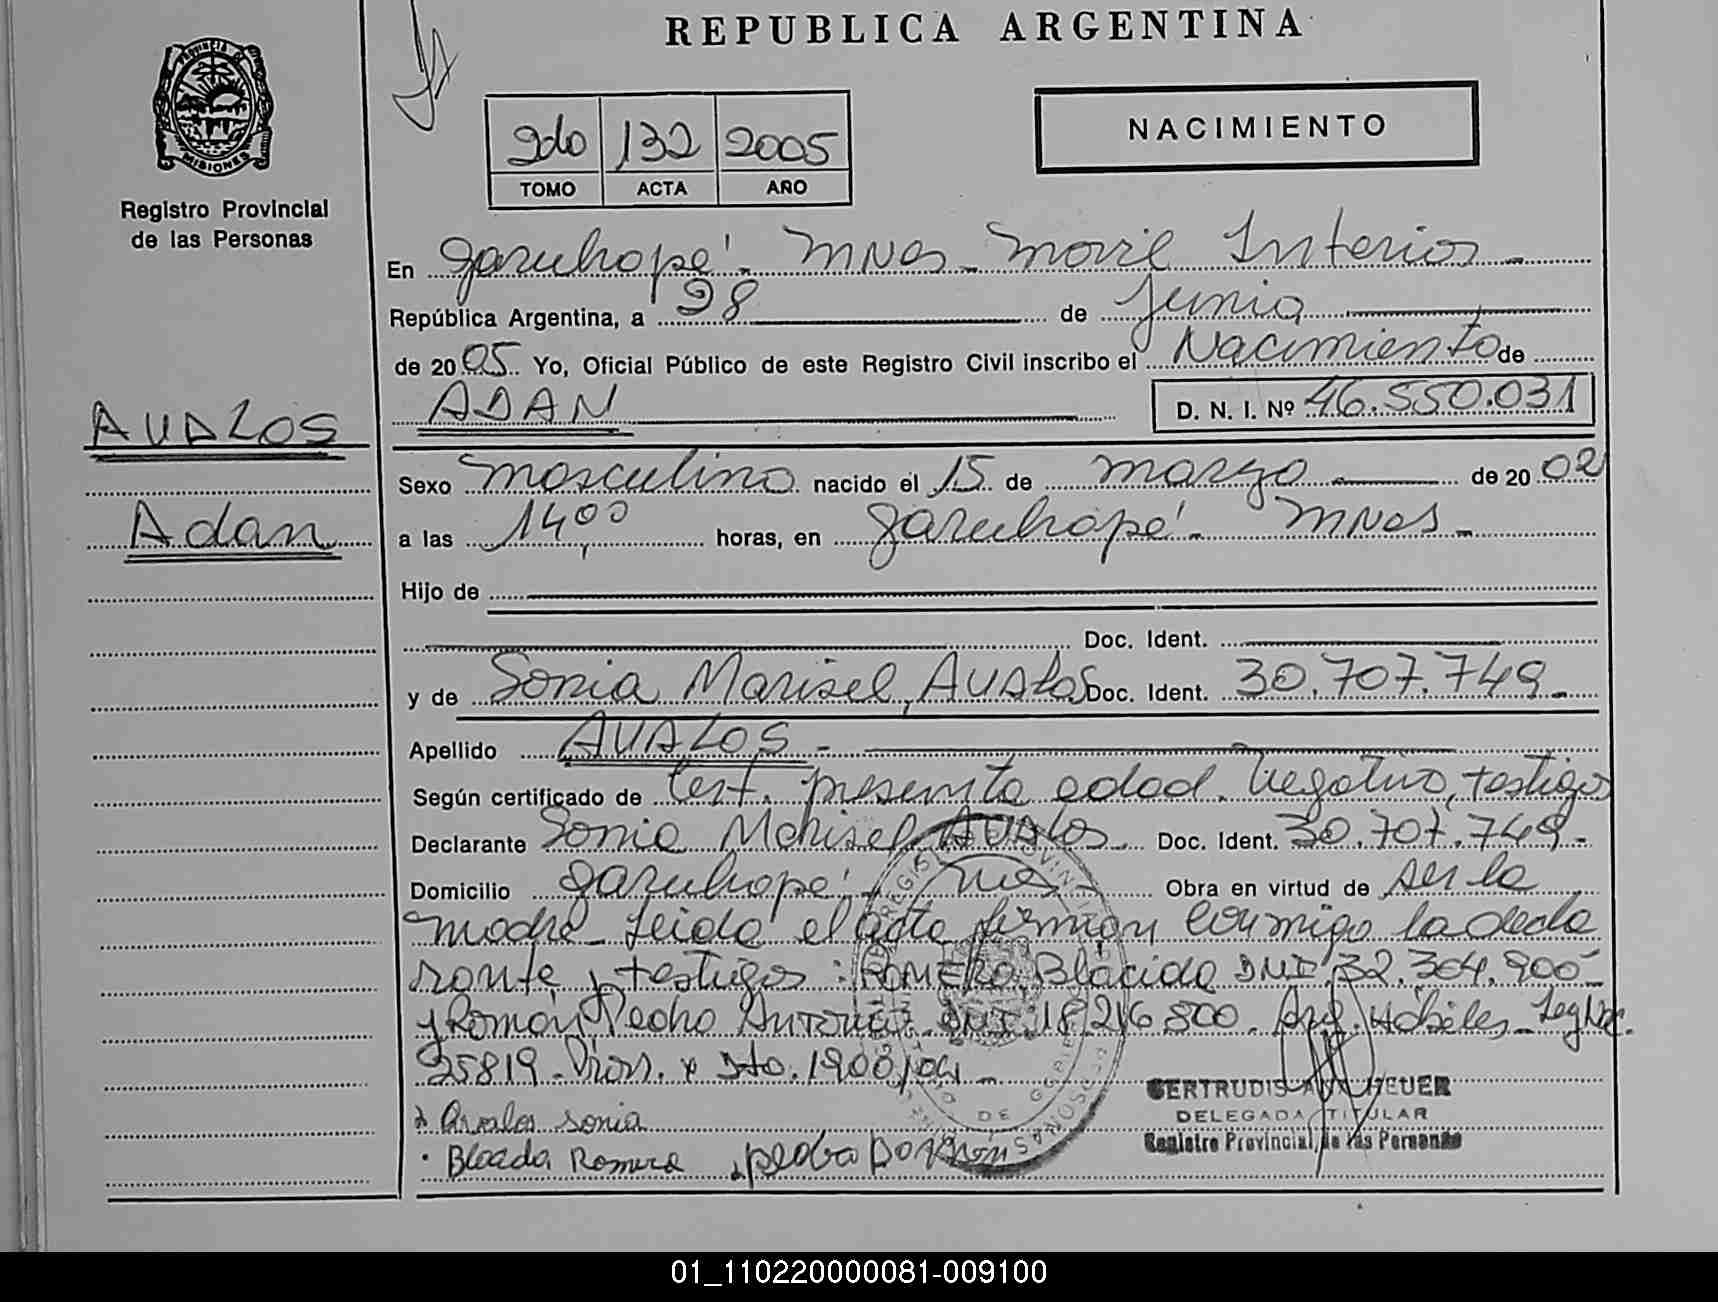 REPUBLICA ARGENTINA
PROVINCIA DE
MISIONES
Registro Provincial
de las Personas
2do 132 2005
TOMO ACTA AÑO
NACIMIENTO
En Garuhapé - MNES - Movil Interior -
República Argentina, a 28 de Junio
de 2005 Yo, Oficial Público de este Registro Civil inscribo el Nacimiento de
ADAN D. N. I. Nº 46.550.031
AVALOS
Adan
Sexo masculino nacido el 15 de marzo de 2002
a las 14,00 horas, en Garuhapé - MNES -
Hijo de
Doc. Ident.
y de Sonia Marisel, AVALOS Doc. Ident. 30.707.749 -
Apellido AVALOS -
Según certificado de Cert. presunta edad. Negativo, testigos
Declarante Sonia Marisel AVALOS Doc. Ident. 30.707.749 -
Domicilio Garuhapé, Mnes - Obra en virtud de ser la
madre - Leida el acta firman conmigo la decla
rante y testigos: ROMERO Blácida DNI 32.364.900 -
y Román Pedro Antonio DNI 18.216.800. Arg. Hábiles - Ley Nac.
25819 - Prov. y Dto. 1908/04 -
x Avalos Sonia
Blacida Romero pedro
GERTRUDIS HEUER
DELEGADA TITULAR
Registro Provincial de las Personas
01_110220000081-009100